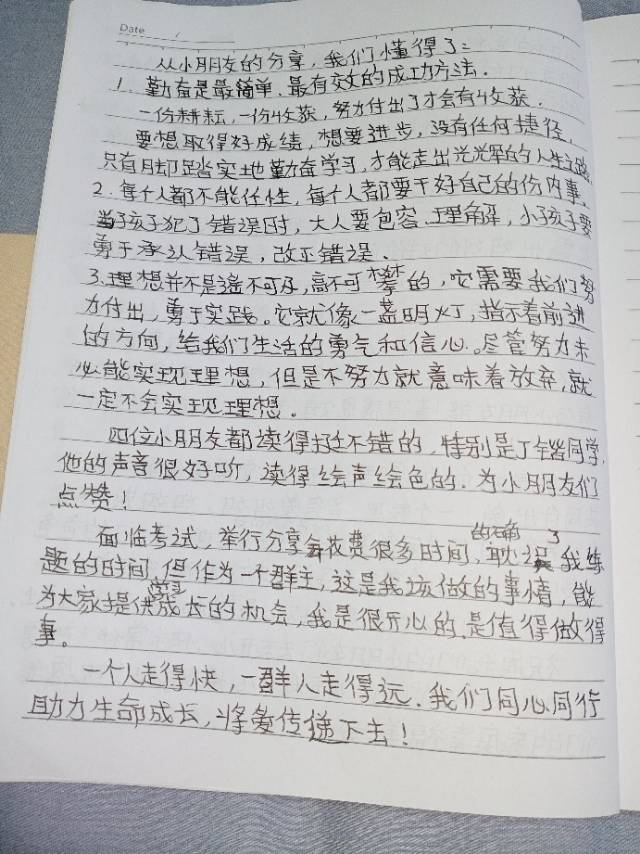 Date /
从小朋友的分享,我们懂得了:
1. 勤奋是最简单、最有效的成功方法.
一份耕耘,一份收获,努力付出了才会有收获.
要想取得好成绩,想要进步,没有任何捷径,
只有脚踏实地勤奋学习,才能走出光光的人生之路.
2. 每个人都不能任性,每个人都要干好自己的份内事.
当孩子犯了错误时,大人要包容、理解,小孩子要
勇于承认错误,改正错误.
3.理想并不是遥不可及,高不可攀的,它需要我们努
力付出,勇于实践。它就像一盏明灯,指示着前进
的方向,给我们生活的勇气和信心.尽管努力未
必能实现理想,但是不努力就意味着放弃,就
一定不会实现理想.
四位小朋友都读得挺不错的,特别是丁锴同学,
他的声音很好听,读得绘声绘色的.为小朋友们
点赞!
面临考试,举行分享每花费很多时间,的确耽误了我练
题的时间,但作为一个群主,这是我该做的事情,能
为大家提供学习成长的机会,我是很开心的,是值得做得
事。
一个人走得快,一群人走得远.我们同心同行
助力生命成长,将爱传递下去!